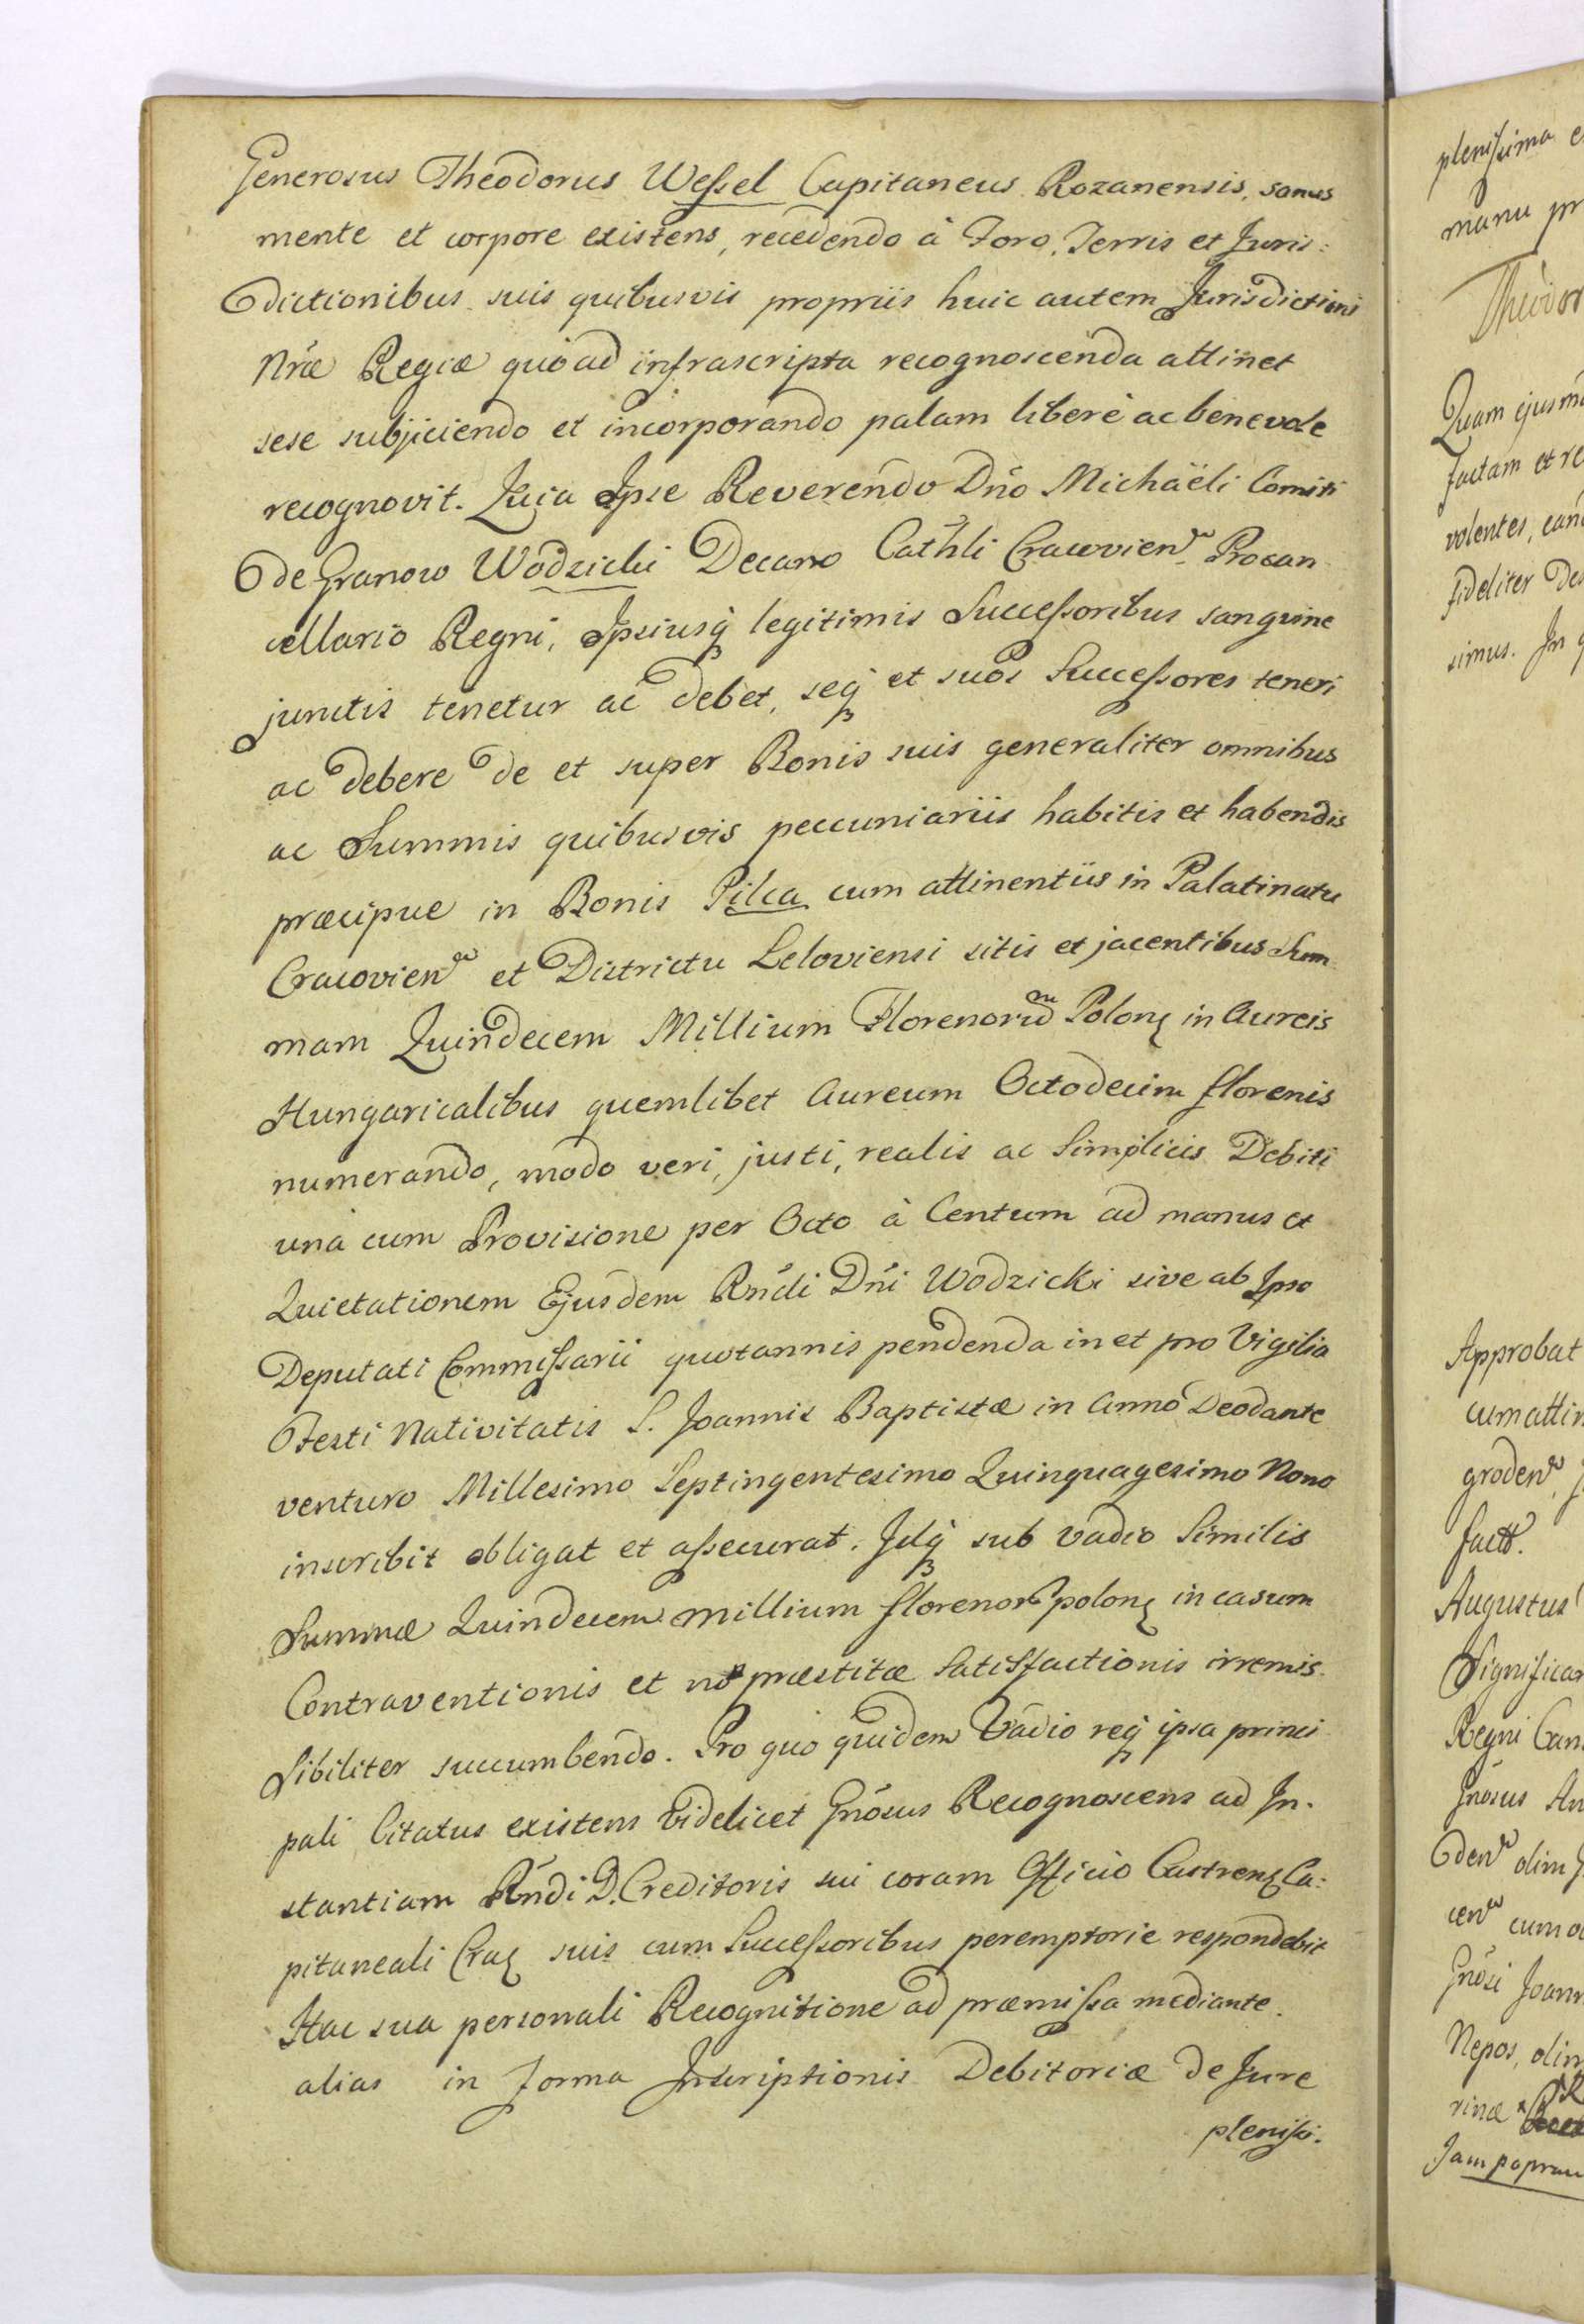 Generosus Theodorus Wessel Capitaneus Rozanensis, sanus
mente et corpore existens, recedendo à Foro, Terris et Juris:
dictionibus suis quibusvis propriis huic autem Jurisdictioni
Nr̃æ Regiæ quo ad infrascripta recognoscenda attinet
sese subjiciendo et incorporando palam liberè ac benevole
recognovit. Quia Ipse Reverendo Dño Michaëli Comiti
de Granow Wodzicki Decano Cathli Cracovien. Procan
cellario Regni, Ipsiusq; legitimis Successoribus sanguine
junctis tenetur ac debet, seq; et suos Successores teneri
ac debere de et super Bonis suis generaliter omnibus
ac Summis quibusvis peccuniariis habitis et habendis
præcipue in Bonis Pilca cum attinentiis in Palatinatu
Cracovien. et Districtu Leloviensi sitis et jacentibus Sum
mam Quindecem Millium Florenorum Polon: in Aureis
Hungaricalibus quemlibet Aureum Octodecim florenis
numerando, modo veri, justi, realis ac Simplicis Debiti
unà cum Provisione per Octo à Centum ad manus et
Quietationem Ejusdem Rñdi Dñi Wodzicki sive ab Ipso
Deputati Commissarii quotannis pendenda in et pro Vigilia
Festi Nativitatis S. Joannis Baptistæ in Anno Deo dante
venturo Millesimo Septingentesimo Quinquagesimo Nono
inscribit obligat et assecurat. Idq; sub vadio Similis
Summæ Quindecem millium florenor. polon: in casum
Contraventionis et no præstitæ Satisfactionis irremis
sibiliter succumbendo. Pro quo quidem Vadio req; ipsa princi
pali Citatus existens videlicet Gñosus Recognoscens ad In.
stantiam Rñdi D. Creditoris sui coram Officio Castren: Ca:
pitaneali Crac: suis cum Successoribus peremptorie respondebit
Hac sua personali Recognitione ad præmissa mediante.
alias in forma Inscriptionis Debitoriæ de Jure
plenissi.
plenissima
manu
Theodor
Quam ejusm
factam et re
volentes, ean
fideliter Des
simus. In
Approbat
cum attin
groden.
fact.
Augustus
Significa
Regni Can
Gnosus An
den. olim
cen. cum
Gnosi Joann
Nepos, olim
rinæ
Jam popraw